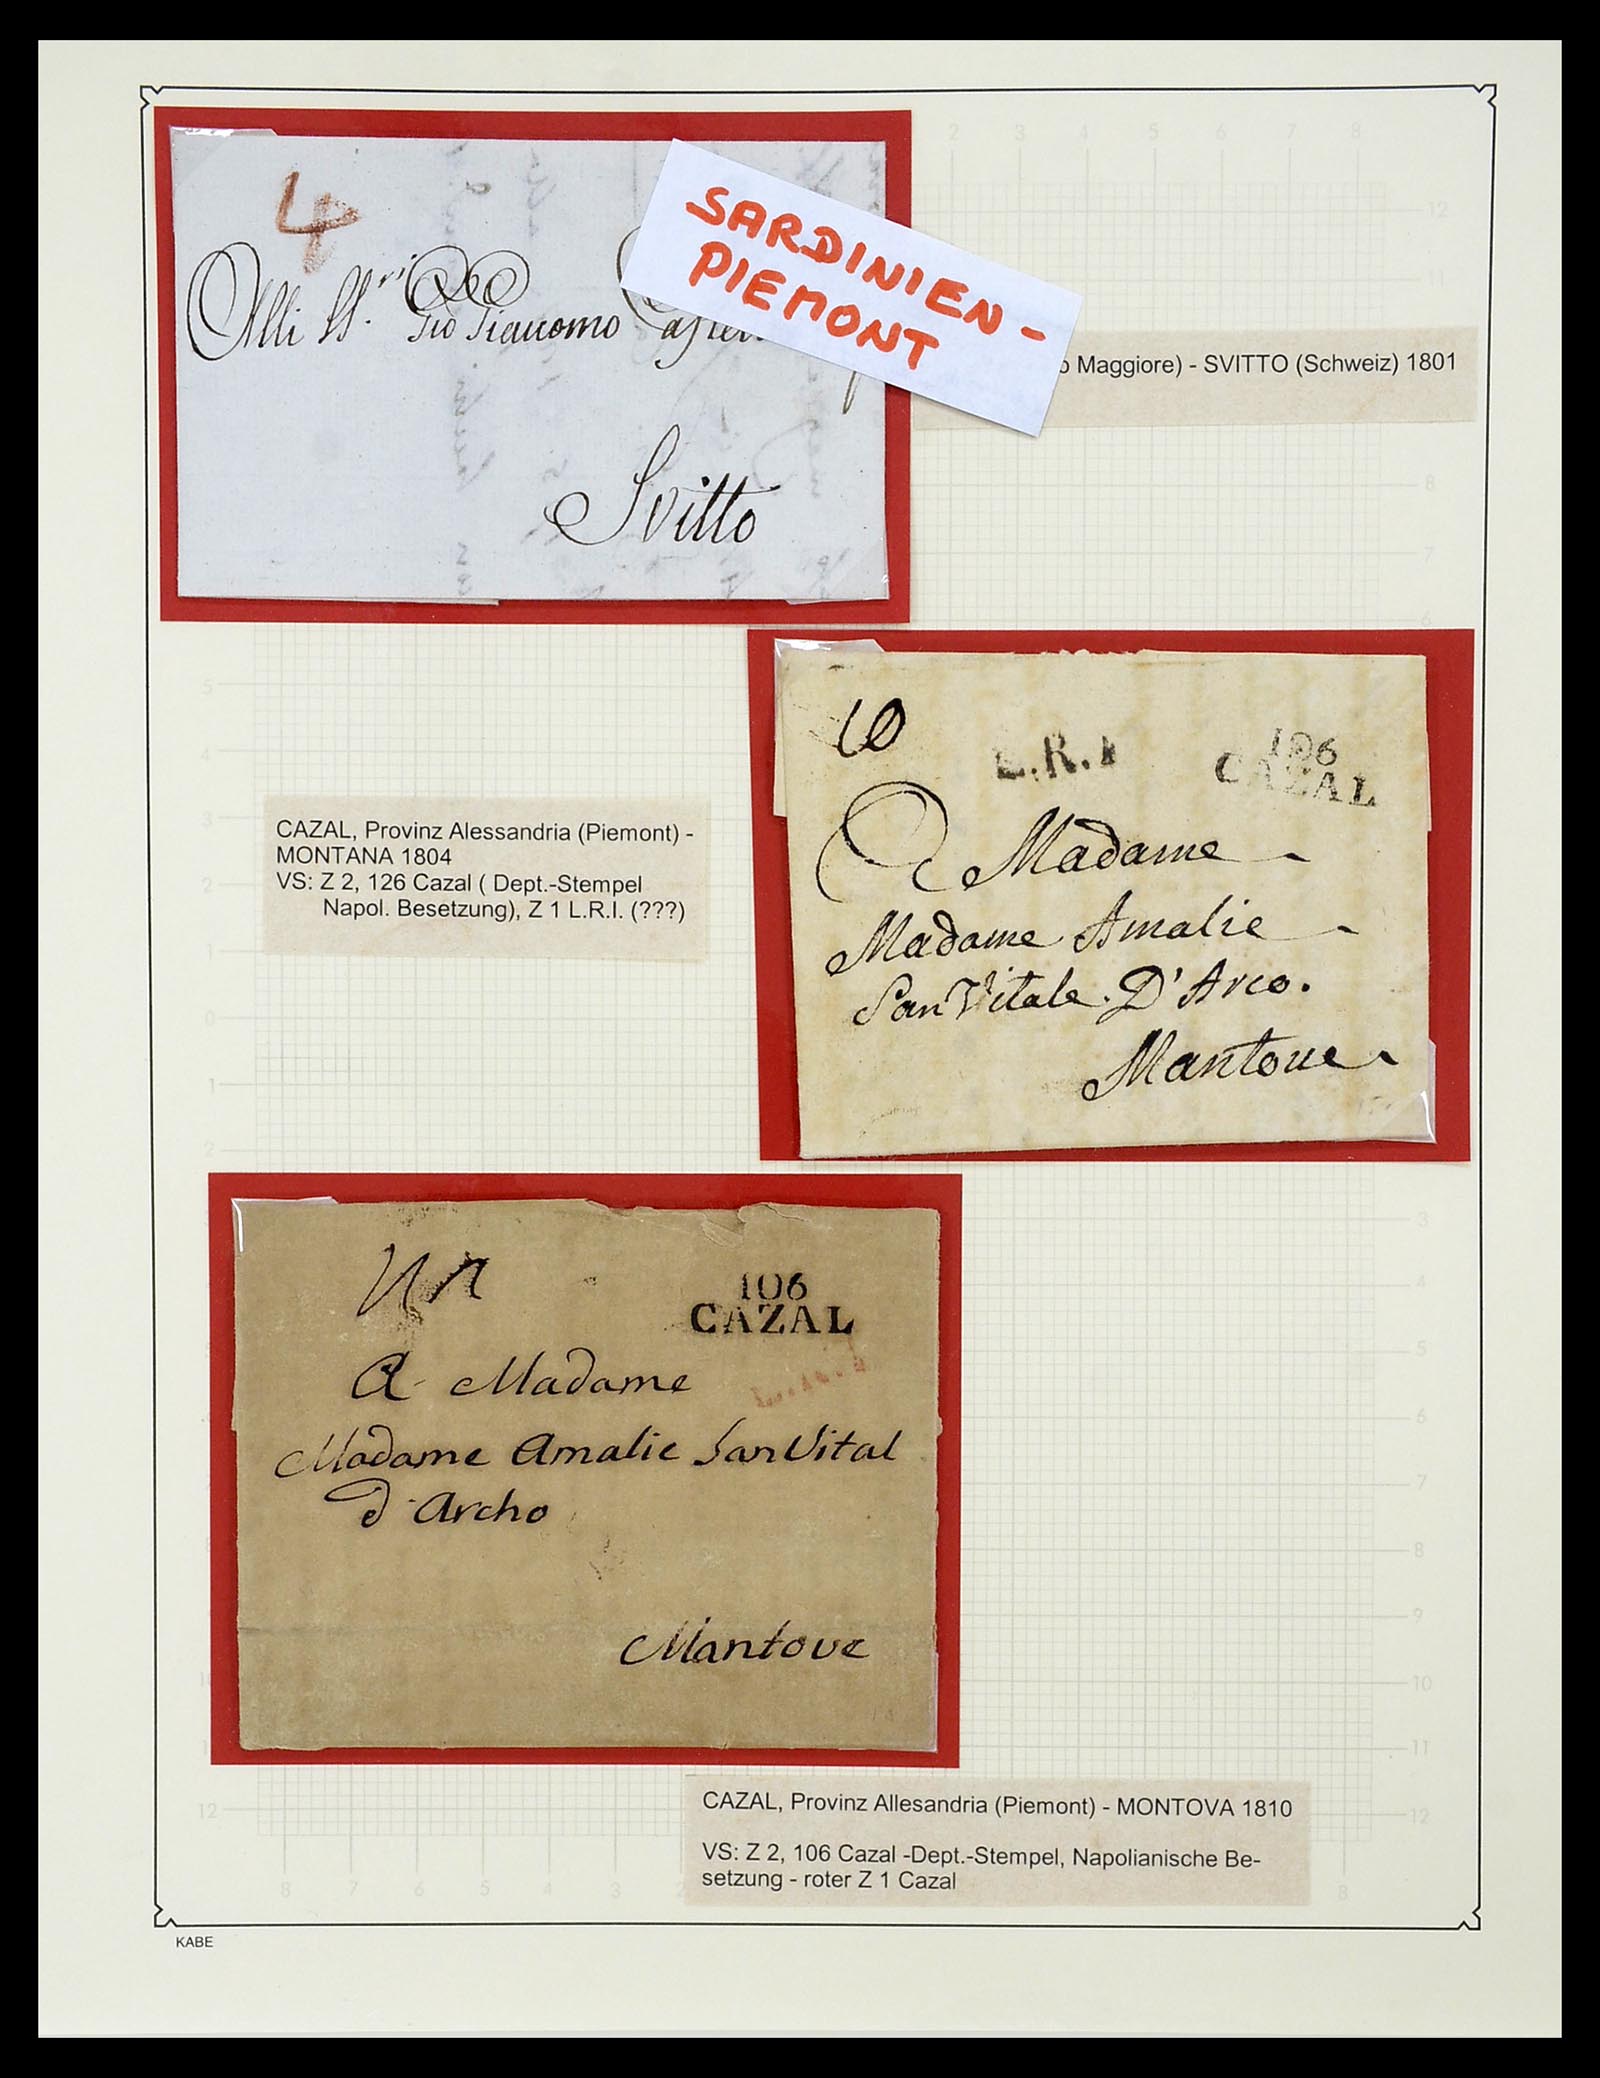 4
SARDINIEN -
PIEMONT
Alli SS.ri Gio Giacomo
Svitto
o Maggiore) - SVITTO (Schweiz) 1801
10
L.R.I
106
CAZAL
A Madame
Madame Amalie
San Vitale D'Arco.
Mantoue
CAZAL, Provinz Alessandria (Piemont) -
MONTANA 1804
VS: Z 2, 126 Cazal ( Dept.-Stempel
Napol. Besetzung), Z 1 L.R.I. (???)
106
CAZAL
A Madame
Madame Amalie San Vital
d'Archo
Mantoue
CAZAL, Provinz Allesandria (Piemont) - MONTOVA 1810
VS: Z 2, 106 Cazal -Dept.-Stempel, Napolianische Be-
setzung - roter Z 1 Cazal
KABE